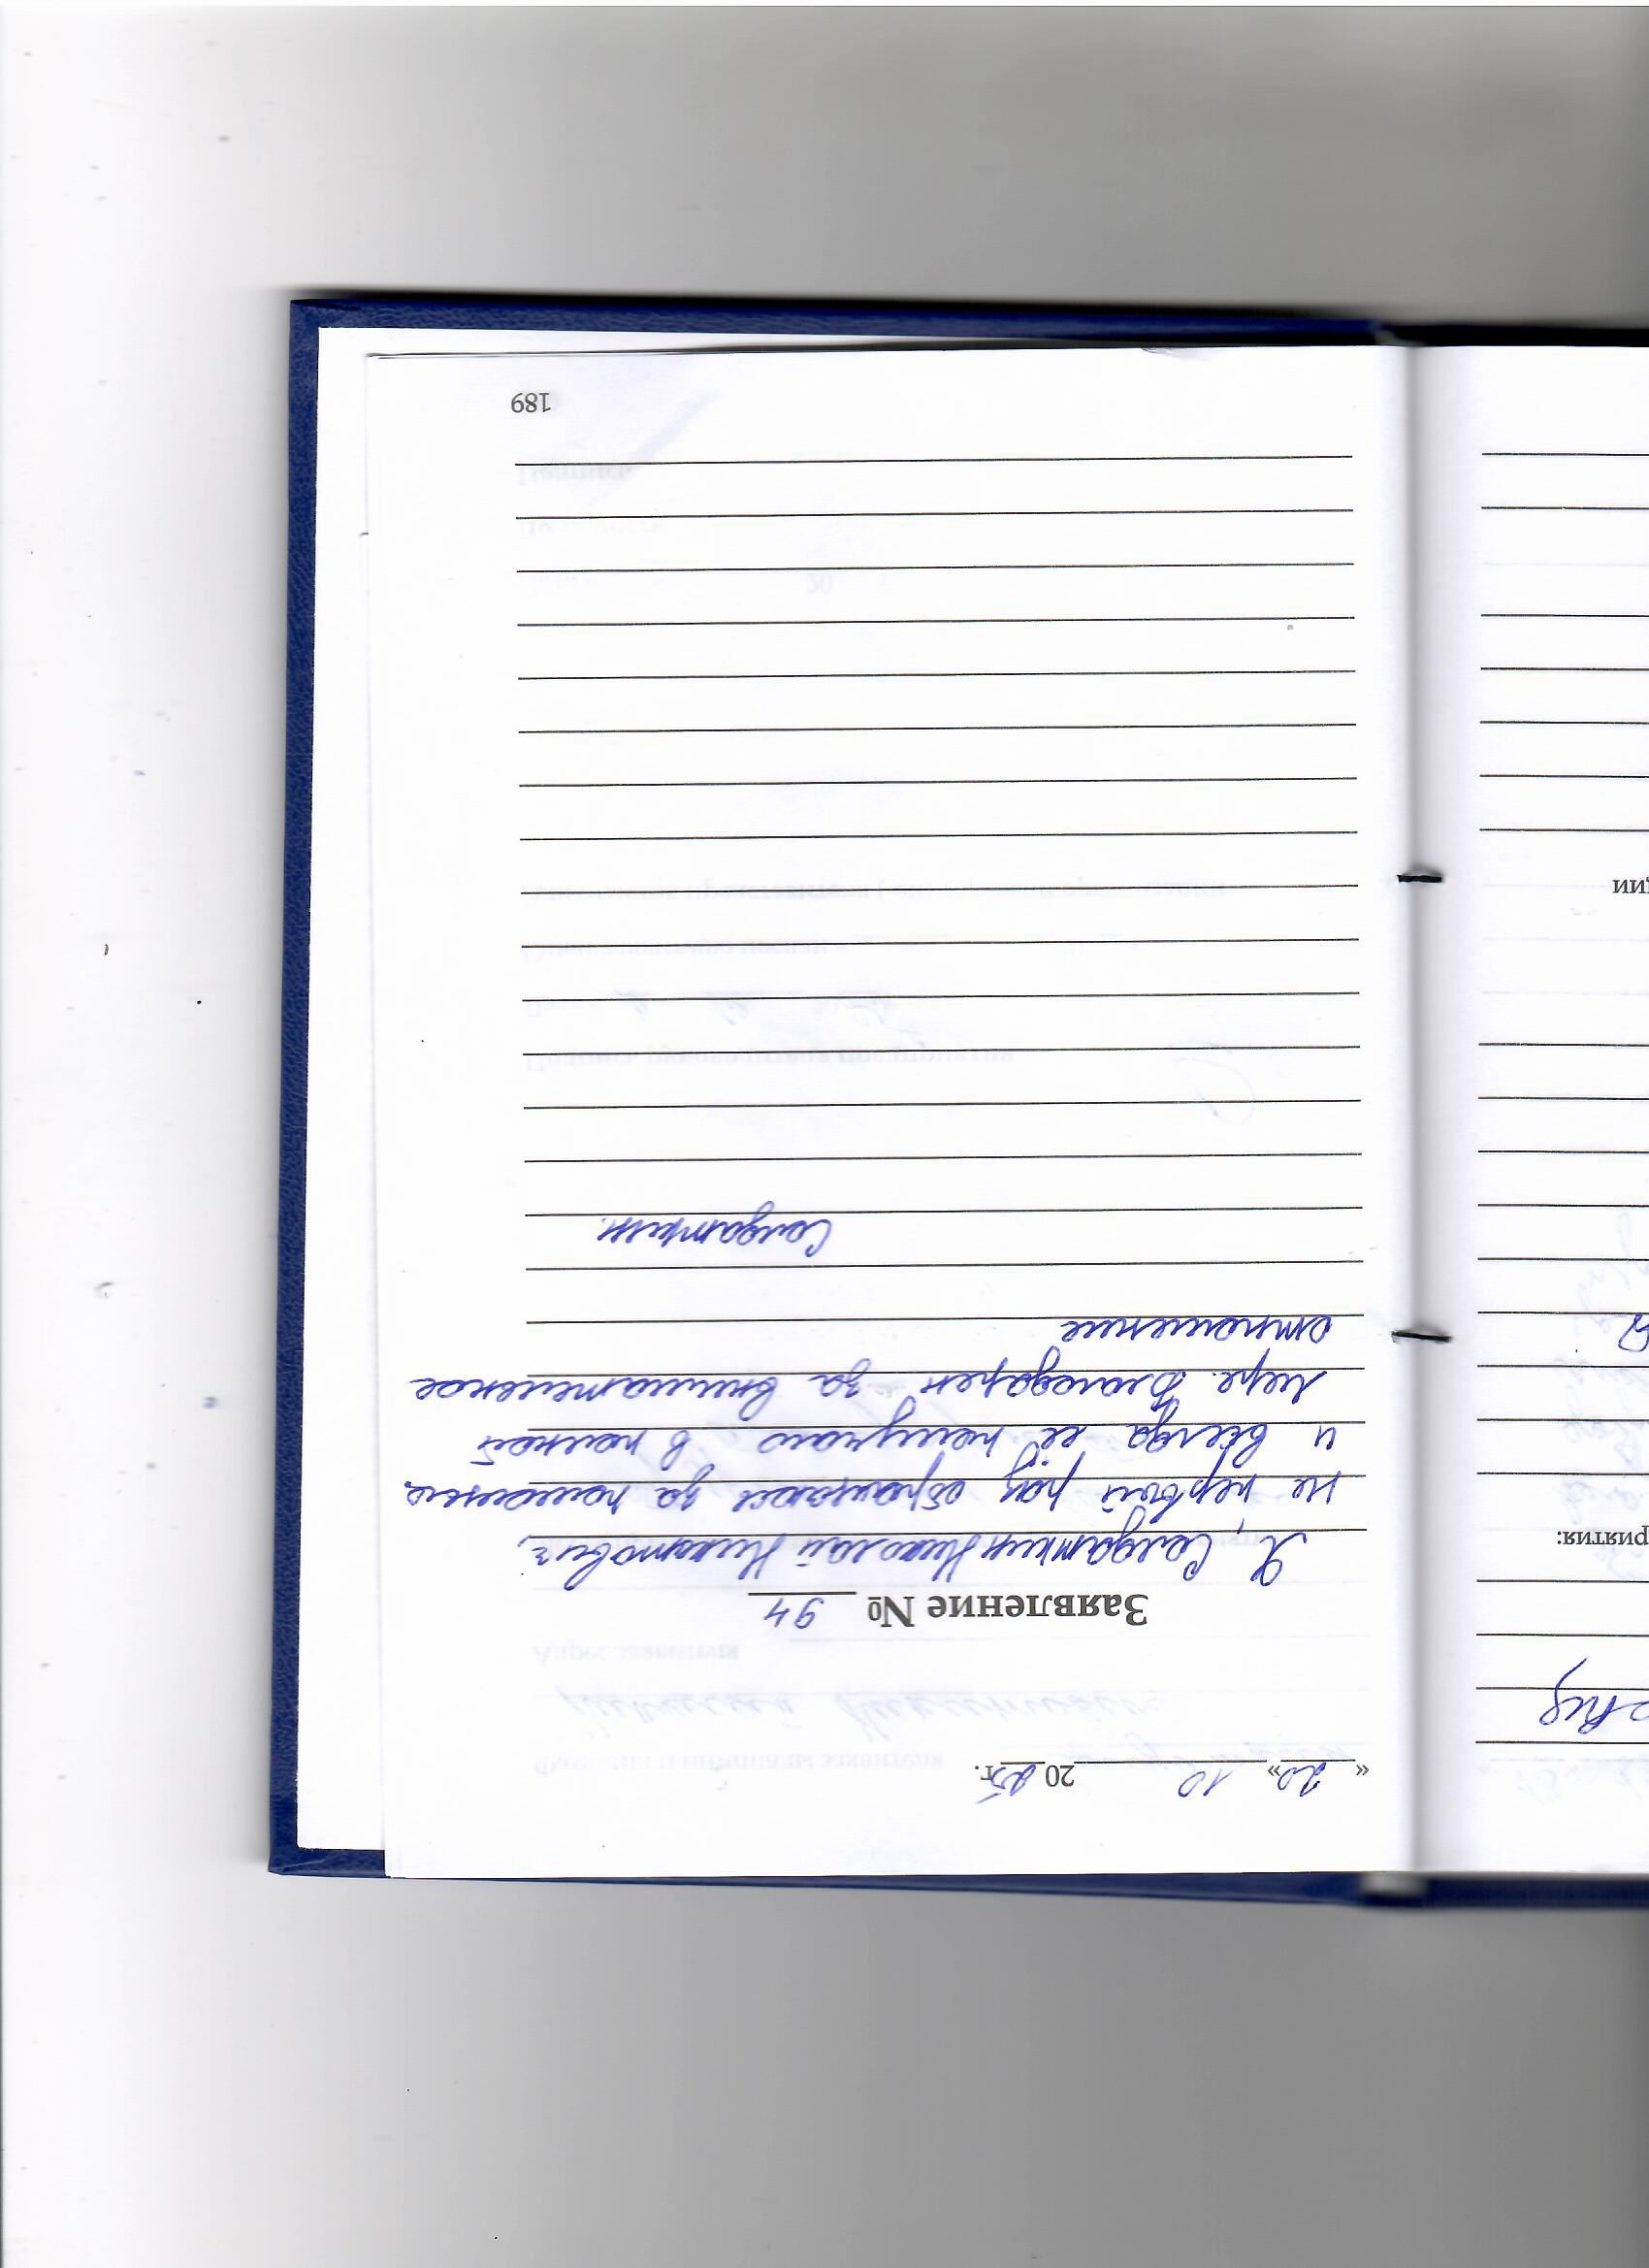 «20» 10 2025 г.
Заявление № 94
Я, Солдаткин Николай Никитович,
не первый раз обращаюсь за помощью
и всегда её получаю в полной
мере. Благодарен за внимательное
отношение
Солдаткин.
189
риятия:
ции